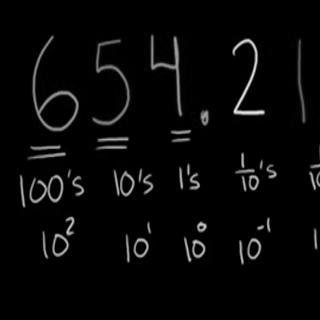 654.21
100's 10's 1's 1/10's
10² 10¹ 10⁰ 10⁻¹